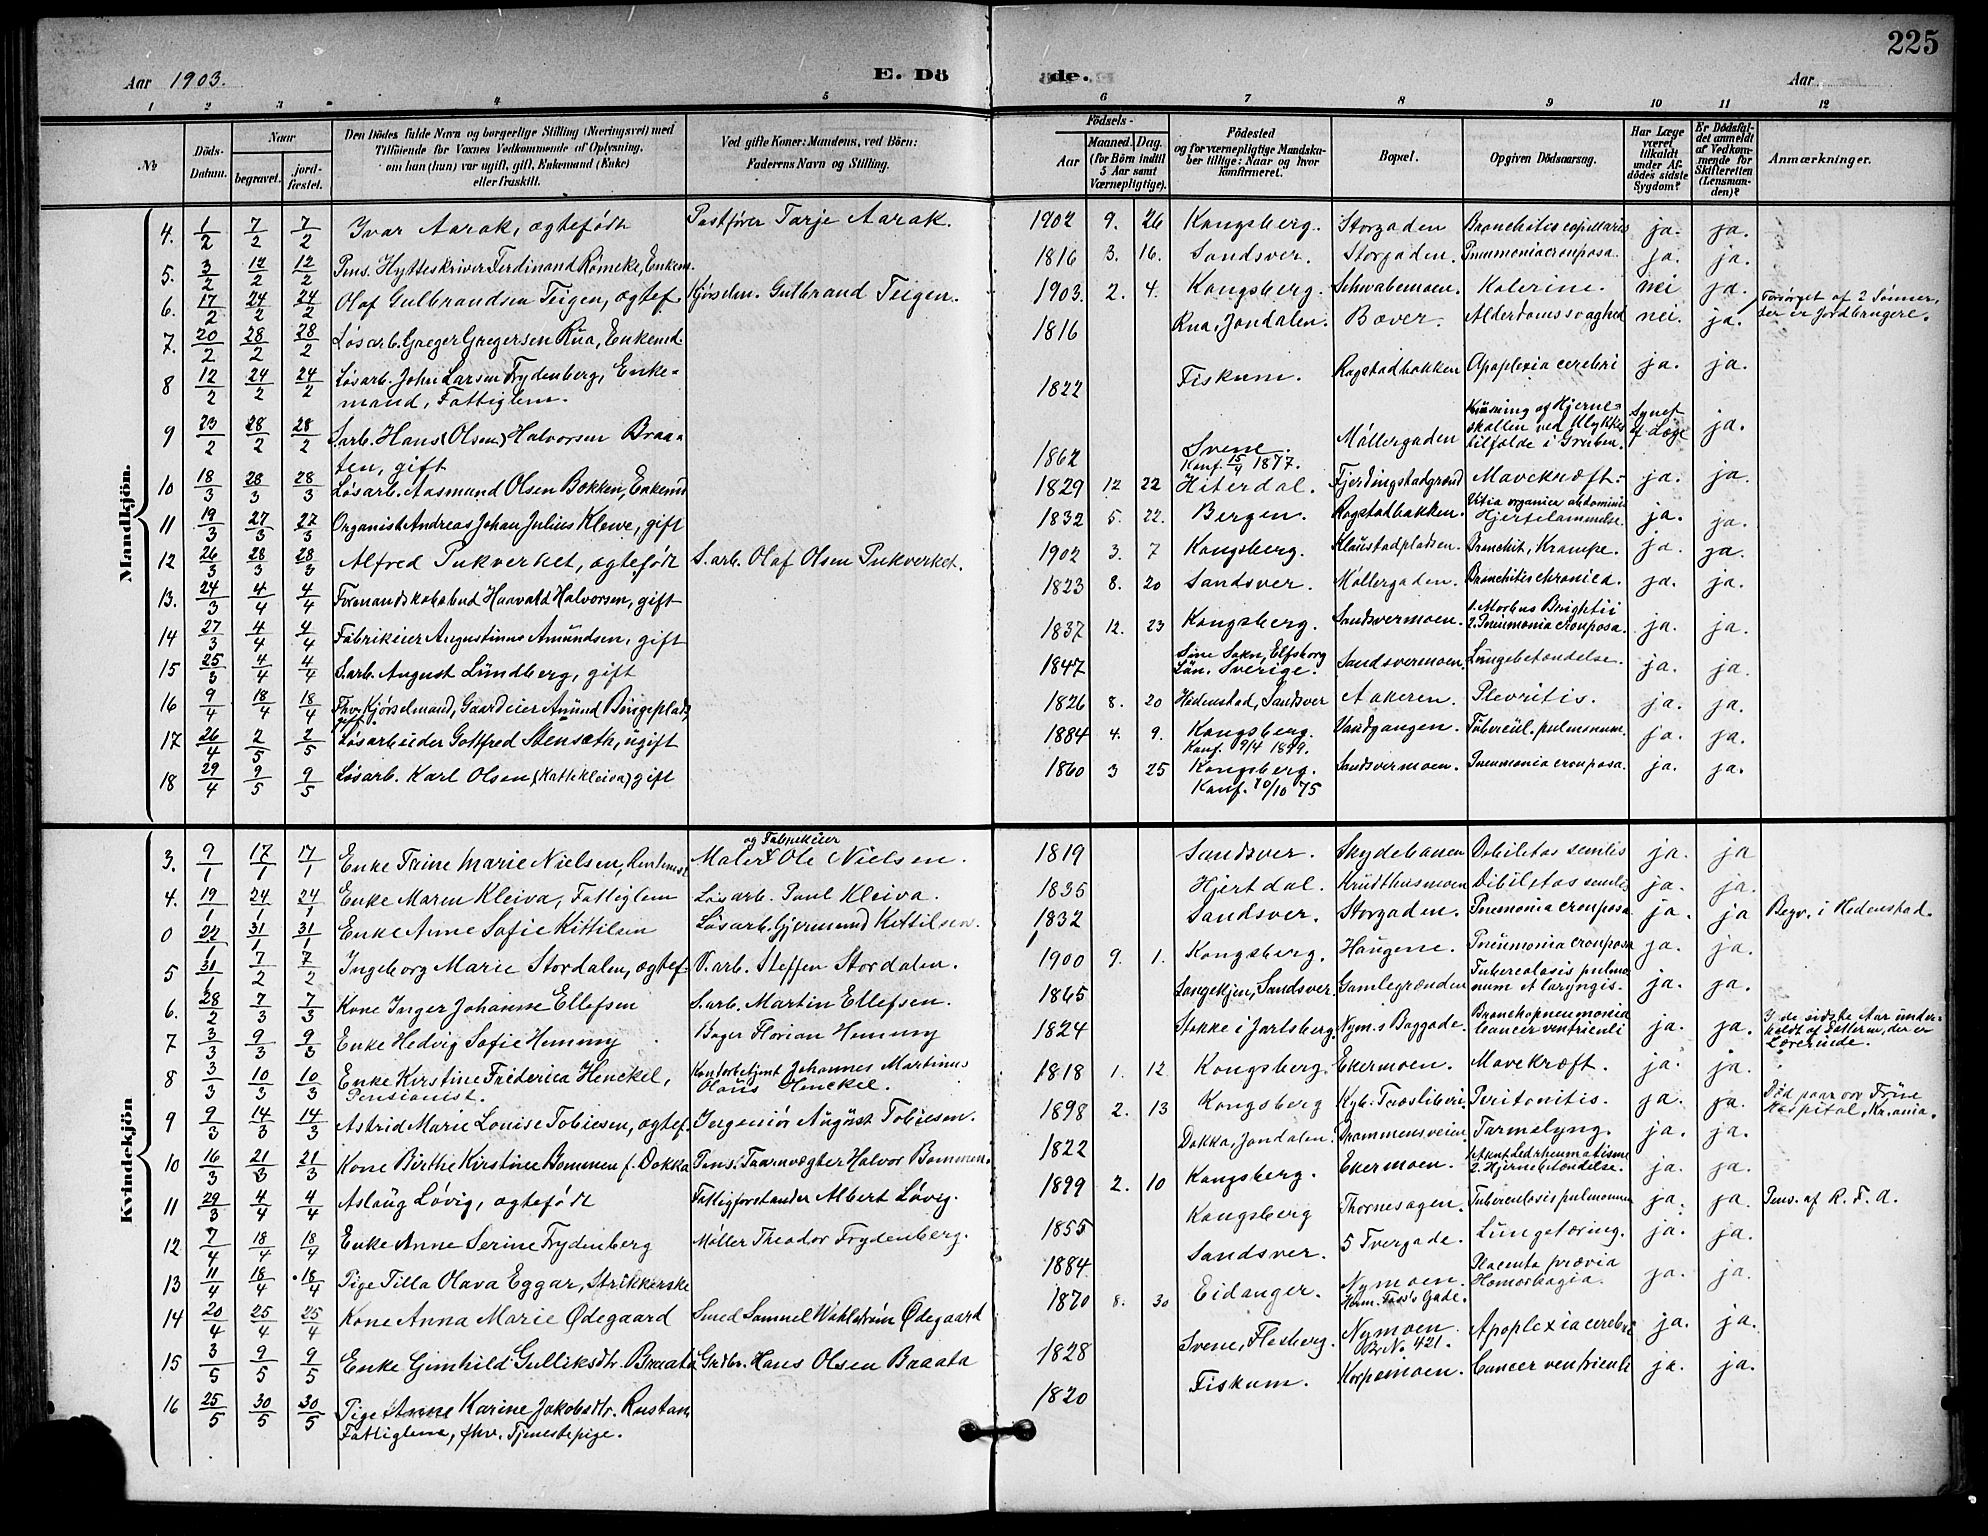 225
Aar 1903. E. Dö de. Aar
1 2 3 4 5 6 7 8 9 10 11 12
№ Döds-Datum. Naar begravet. jord-fæstet. Den Dödes fulde Navn og borgerlige Stilling (Næringsvei) med Tilföiende for Voxnes Vedkommende af Oplysning, om han (hun) var ugift, gift, Enkemand (Enke) eller fraskilt. Ved gifte Koner: Mandens, ved Börn: Faderens Navn og Stilling. Födsels- Aar Maaned. Dag. (for Börn indtil 5 Aar samt Værnepligtige). Födested og for værnepligtige Mandska-ber tillige: Naar og hvor konfirmeret. Bopæl. Opgiven Dödsaarsag. Har Læge været tilkaldt under Af-dödes sidste Sygdom? Er Dödsfal-det anmeldt af Vedkom-mende for Skifteretten (Lensman-den)? Anmærkninger.
Mandkjön.
4. 1/2 7/2 7/2 Ivar Aarak, ægtefödt Postförer Tarje Aarak. 1902 9. 26 Kongsberg. Storgaden Bronchitis capillaris ja. ja.
5. 3/2 12/2 12/2 Pens. Hytteskriver Ferdinand Römcke, Enkem. 1816 3. 16. Sandsver. Storgaden. Pneumonia crouposa. ja. ja.
6. 17/2 24/2 24/2 Olaf Gulbrandsen Teigen, ægtef. Kjörselm. Gulbrand Teigen. 1903. 2. 4. Kongsberg. Schwabemoen. Kolerine. nei ja.
7. 20/2 28/2 28/2 Lösarb. Greger Gregersen Rua, Enkemd. 1816 Rua, Jondalen. Bæver. Alderdomssvaghed nei. ja. Forsörget af 2 Sönner, der er Jordbrugere.
8 12/2 24/2 24/2 Lösarb. John Larsen Frydenberg, Enke-
mand, Fattiglem. 1822 Fiskum. Rogstadbakken Apoplexia cerebri ja. ja.
9 23/2 28/2 28/2 S.arb. Hans (Olsen) Halvorsen Braa-
ten, gift 1862 Svene. Konf. 15/9 1877. Möllergaden Knüsning af Hjerne-skallen ved Ulykkes-tilfælde i Gruben. Synet af Læge ja.
10 18/3 28/3 28/3 Lösarb. Aasmund Olsen Bakken, Enkemd 1829 12 22 Hiterdal. Fjerdingstadgrund Mavekræft. ja. ja.
11 19/3 27/3 27/3 Organist Andreas Johan Julius Klewe, gift 1832 5. 22. Bergen. Rogstadbakken. Vitia organica abdominis Hjertelammelse. ja. ja.
12 26/3 28/3 28/3 Alfred Pukverket, ægtefödt S.arb. Olaf Olsen Pukverket. 1902 3. 7 Kongsberg. Klaüstadpladsen. Bronchit, Krampe. ja. ja.
13. 24/3 4/4 4/4 Haavald Halvorsen, gift 1823 8. 20 Sandsver. Möllergaden. Bronchitis chronica. ja. ja.
14 27/3 4/4 4/4 Fabrikeier Augustinus Amündsen, gift 1837 12. 23 Kongsberg. Sandsvermoen. 1. Morbus Brightii 2. Pneumonia crouposa. ja. ja.
15 25/3 4/4 4/4 S.arb. August Lündberg, gift 1847 Sokn, Elfsborg Län. Sverige. Sandsvermoen. Lüngebetændelse. ja. ja.
16 9/4 18/4 18/4 Fhv. Kjörselmand, Gaardeier Amünd Bingeplads,
gift 1826 8. 20 Hedenstad, Sandsver Aakeren. Plevritis. ja. ja.
17 26/4 2/5 2/5 Lösarbeider Gottfred Stensæth, ugift 1884 4. 9. Kongsberg. Konf. 9/4 1899. Vandgangen. Tübercül. pulmonum. ja. ja.
18 29/4 9/5 9/5 Lösarb. Karl Olsen (Kattekleiva) gift 1860 3 25 Kongsberg. Konf. 10/10 75 Sandsvermoen. Pneumonia crouposa. ja. ja.
Kvindekjön
3. 9/1 17/1 17/1 Enke Trine Marie Nielsen, Maler og Fabrikeier Ole Nielsen. 1819 Sandsver. Skydebanen Debilitas senilis ja. ja
4. 19/1 24/1 24/1 Enke Maren Kleiva, Fattiglem Lösarb. Paul Kleiva. 1835 Hjertdal. Krüdthusmoen Debilitas senilis ja. ja.
0 22/1 31/1 31/1 Enke Anne Sofie Kittilsen Lösarb. Gjermund Kittilsen. 1832 Sandsver. Storgaden. Pneumonia crouposa ja. ja Begr. i Hedenstad.
5 31/1 7/2 7/2 Ingeborg Marie Stordalen, ægtef. V.arb. Steffen Stordalen. 1900 9. 1. Kongsberg. Haügene. Pneumonia crouposa ja. ja.
6. 28/2 7/3 7/3 Kone Inger Johanne Ellefsen S.arb. Martin Ellefsen. 1865 Langekjen, Sandsver. Gamlegrænden Tuberculosis pulmo-num et laryngis. ja. ja.
7 3/3 9/3 9/3 Enke Hedvig Sofie Hemmy Bager Florian Hemmy 1824 Stokke i Jarlsberg. Nym.s Baggade. Bronchopneumonia Cancer ventriculi ja. ja. I de sidste Aar under-holdt af Datteren, der er Lærerinde.
8 3/3 10/3 10/3 Enke Kirstine Friderica Henckel,
Pensionist. Kontorbetjent Johannes Martinus Olaus Henckel. 1818 1. 12 Kongsberg. Ekermoen. Mavekræft. ja. ja.
9 9/3 14/3 14/3 Astrid Marie Louise Tobiesen, ægtef. Ingeniör Aügüst Tobiesen. 1898 2. 13 Kongsberg Kgb. Træsliberi. Peritonitis. ja. ja. Död paa Vor Früe Hospital, Kr.ania.
10 16/3 21/3 21/3 Kone Birthe Kirstine Bommen f. Dokka Pens. Taarnvægter Halvor Bommen. 1822 Dokka, Jondalen. Drammensveien Tarmslyng. ja. ja.
11 29/3 4/4 4/4 Aslaüg Lövig, ægtefödt Fattigforstander Albert Lövig. 1899 2. 10 Kongsberg. Ekermoen. 1. Akut Ledrheumatisme 2. Hjernebetændelse. ja. ja.
12 7/4 18/4 18/4 Enke Anne Serine Frydenberg Möller Theodor Frydenberg. 1855 Kongsberg Thornesagen. Tuberculosis pulmonum ja. ja. Pens. af R. F. A.
13 11/4 18/4 18/4 Pige Tilla Olava Eggar, Strikkerske 1884 Sandsver. 5 Tvergade. Lüngetæring. ja. ja.
14 20/4 25/4 25/4 Kone Anna Marie Ødegaard Smed Samuel Wahlström Ødegaard 1870 8. 30 Eidanger. Nymoen. Herm. Foss's Gade. Placenta prævia Hæmorrhagia. ja. ja.
15 3/5 9/5 9/5 Enke Gunhild Gulliksdtr. Braata Grdbr. Hans Olsen Braata 1828 Svene, Flesberg. Nymoen Br. No. 421. Apoplexia cerebri ja. ja.
16 25/5 30/5 30/5 Pige Anne Karine Jakobsdtr. Rustan,
Fattiglem, fhv. Tjenestepige. 1820 Fiskum. Korpemoen. Cancer ventriculi ja. ja.